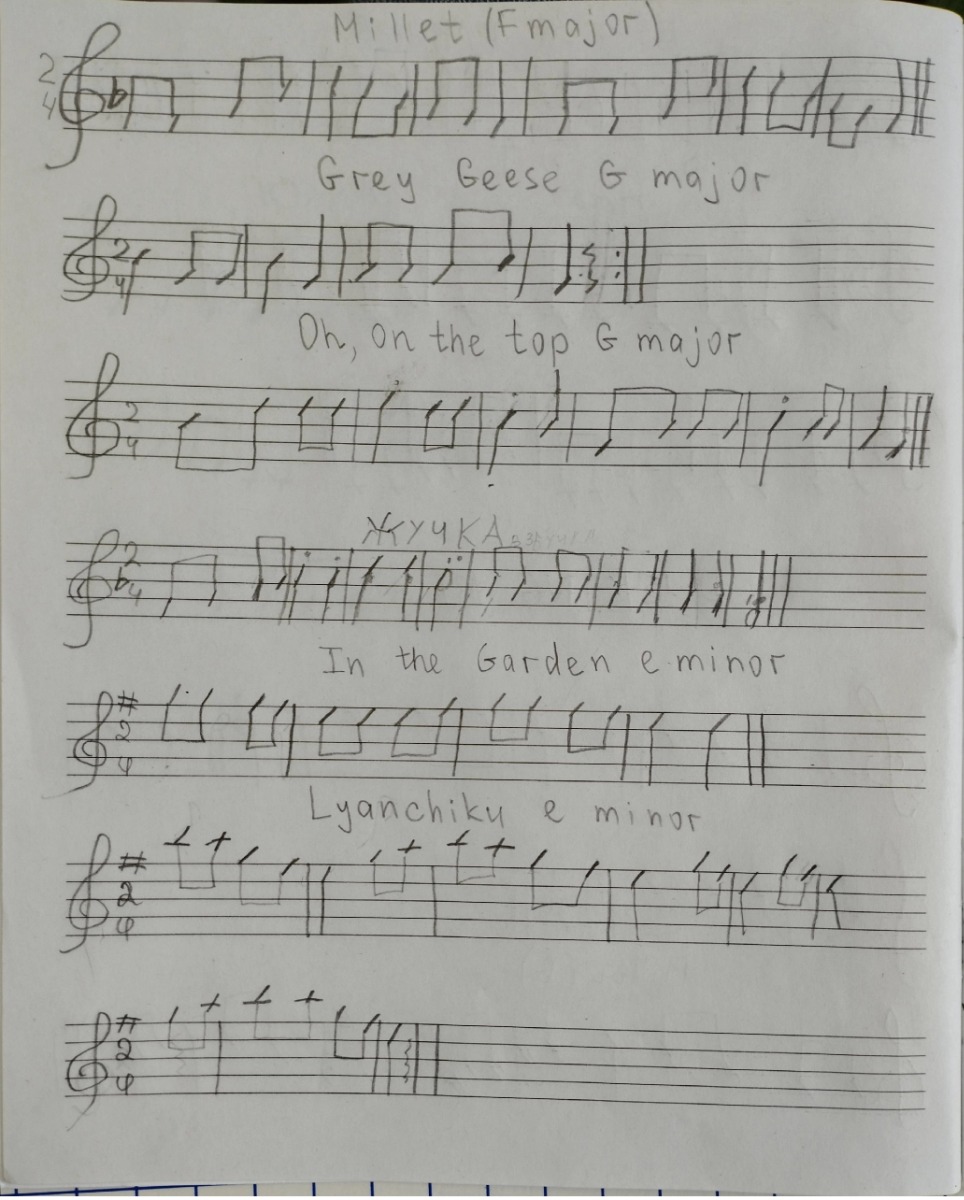 Millet (F major)
2
4
Grey Geese G major
2
4
Oh, on the top G major
2
4
ЖУЧКА
2
4
In the Garden e minor
2
4
Lyanchiku e minor
2
4
2
4